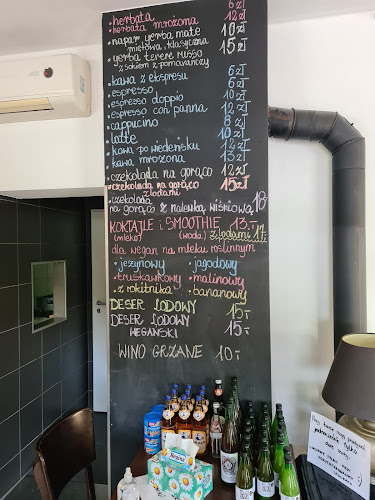 herbata 6 zł
herbata mrożona 12 zł
napar yerba mate 10 zł
miętowa, klasyczna
yerba terere russo 15 zł
z sokiem z pomarańczy
kawa z ekspresu 6 zł
espresso 6 zł
espresso doppio 10 zł
espresso con panna 12 zł
cappucino 8 zł
latte 10 zł
kawa po wiedeńsku 12 zł
kawa mrożona 13 zł
czekolada na gorąco 12 zł
czekolada na gorąco 15 zł
z lodami
czekolada
na gorąco z nalewką wiśniową 18,-
KOKTAJLE i SMOOTHIE 13.-
(mleko) (woda) z lodami 17.-
dla wegan na mleku roślinnym
jeżynowy jagodowy
truskawkowy malinowy
z rokitnika bananowy
DESER LODOWY 15,-
DESER LODOWY 15,-
WEGAŃSKI
WINO GRZANE 10,-